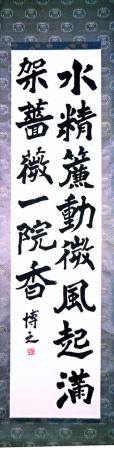 水精簾動微風起滿
架薔薇一院香
博之